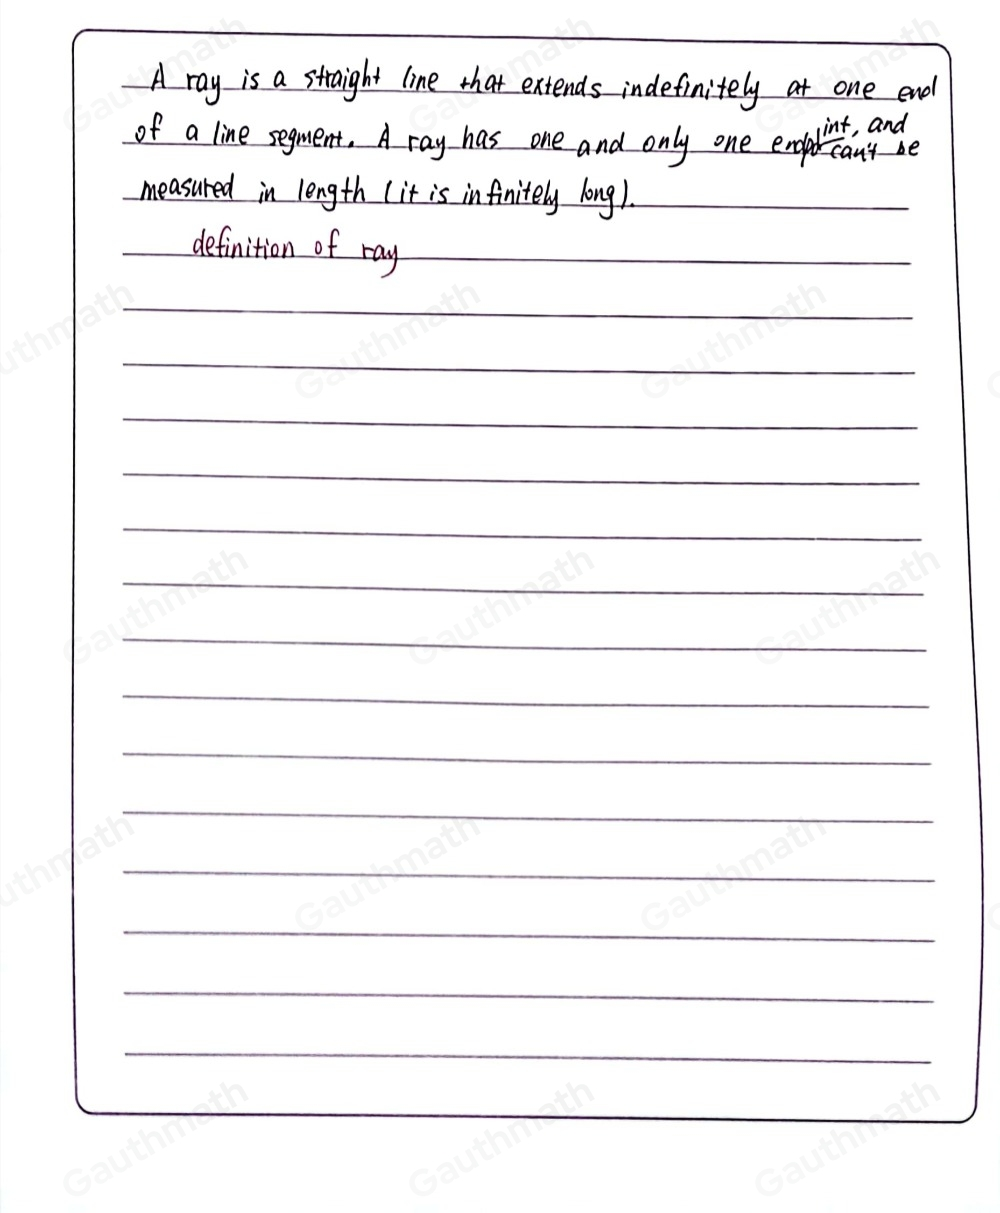 A ray is a straight line that extends indefinitely at one end
of a line segment. A ray has one and only one endpoint, and can't be
measured in length (it is infinitely long).
definition of ray
Gauthmath